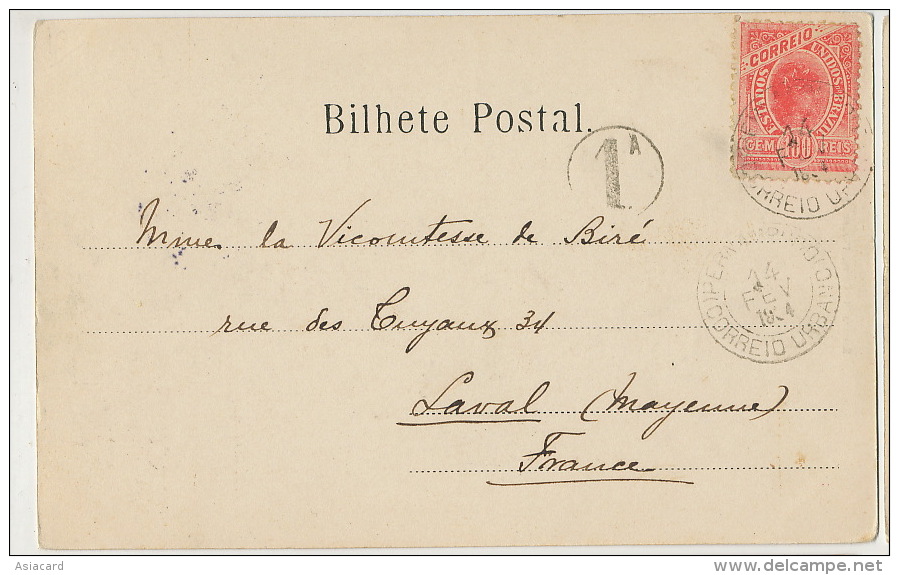 CORREIO
ESTADOS UNIDOS DO BRAZIL
CEM 100 REIS
Bilhete Postal.
1A
14
FEV
CORREIO URBANO
Mme la Vicomtesse de Biré
PERNAMBUCO
14
FEV
1904
CORREIO URBANO
rue des Tuyaux 34
Laval (Mayenne)
France
Asiacard
delcampe.net